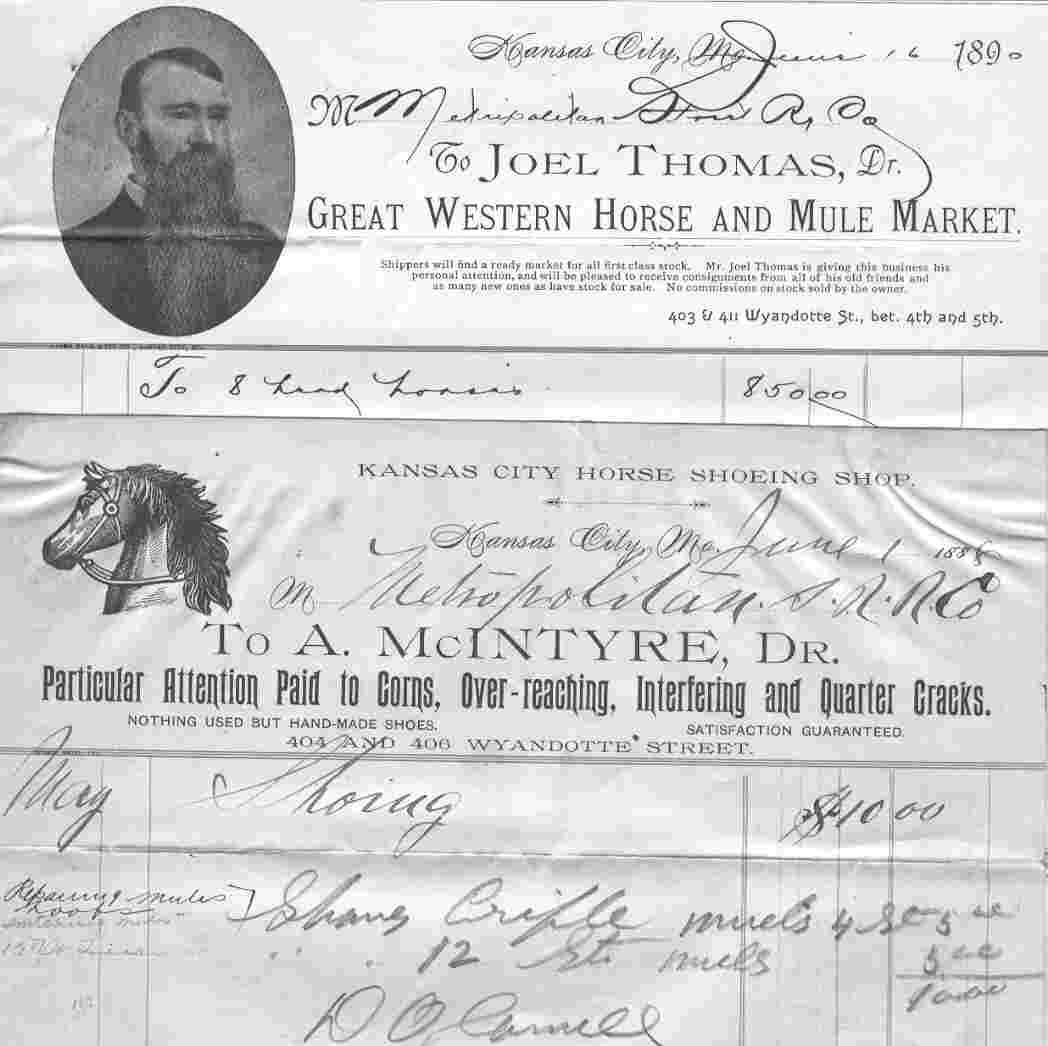 Kansas City, Mo. June 16 1890
M Metropolitan Street R, Co
To JOEL THOMAS, Dr.
GREAT WESTERN HORSE AND MULE MARKET.
Shippers will find a ready market for all first class stock. Mr. Joel Thomas is giving this business his
personal attention, and will be pleased to receive consignments from all of his old friends and
as many new ones as have stock for sale. No commissions on stock sold by the owner.
403 & 411 Wyandotte St., bet. 4th and 5th.
To 8 head horses 850.00
KANSAS CITY HORSE SHOEING SHOP.
Kansas City, Mo. June 1 188
M Metropolitan. S. R. R. Co
TO A. MCINTYRE, DR.
Particular Attention Paid to Corns, Over-reaching, Interfering and Quarter Cracks.
NOTHING USED BUT HAND-MADE SHOES. SATISFACTION GUARANTEED.
404 AND 406 WYANDOTTE STREET.
May Shoing $10.00
Repairing mules
hoofs
Shoing Criple muels 4 St 5
12 St. muels 5
10.00
D O